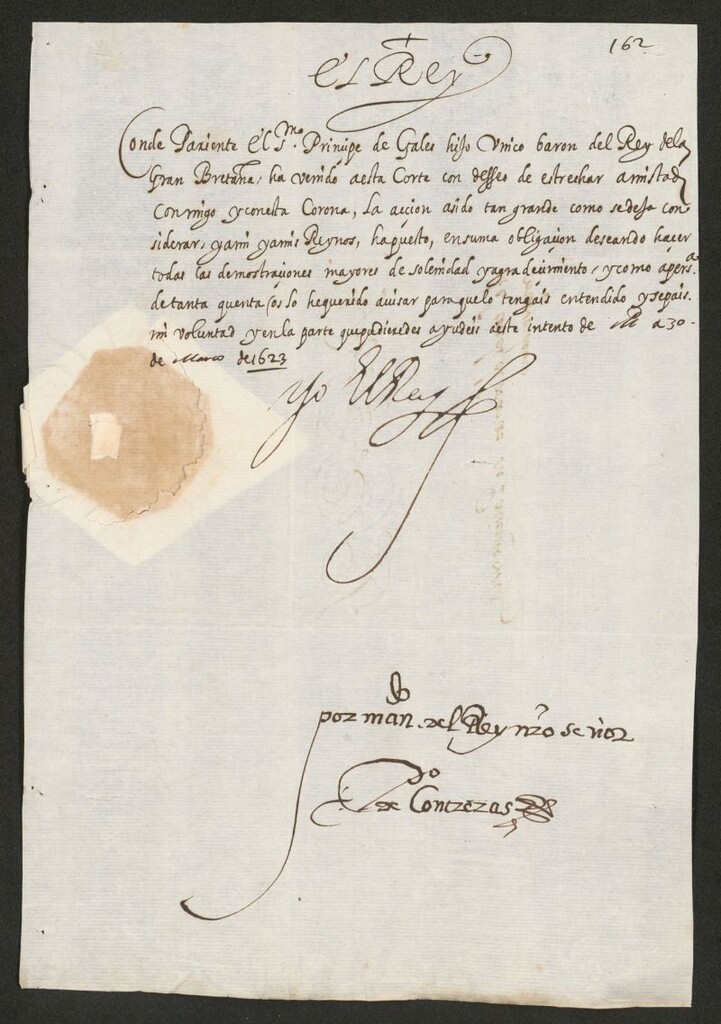 162
El Rey
Conde Pariente El S.mo Principe de Gales hijo Vnico baron del Rey dela
Gran Bretaña, ha venido aesta Corte con desseo de estrechar amistad
Conmigo yconesta Corona, La accion asido tan grande como sedexa con
siderar, yami yamis Reynos, hapuesto, ensuma obligacion deseando hacer
todas las demostraciones mayores de solenidad yagradecimiento, ycomo apers.a
detanta quenta os lo hequerido auisar paraquelo tengais entendido ysepais
mi voluntad yenla parte quepudieredes ayudeis aeste intento de M. a 30.
de Março de1623
yo ElRey
por man.do del Rey nro señor
P.o de Contreras